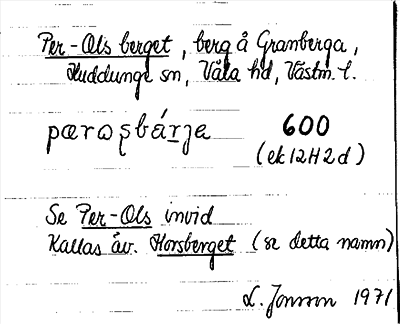 Per-Ols berget, berg å Granberga,
Huddunge sn, Våla hd, Västm. l.
pæroʂbárje 600
(ek 12H2d)
Se Per-Ols invid
Kallas äv. Horsberget (se detta namn)
L. Jonsson 1971